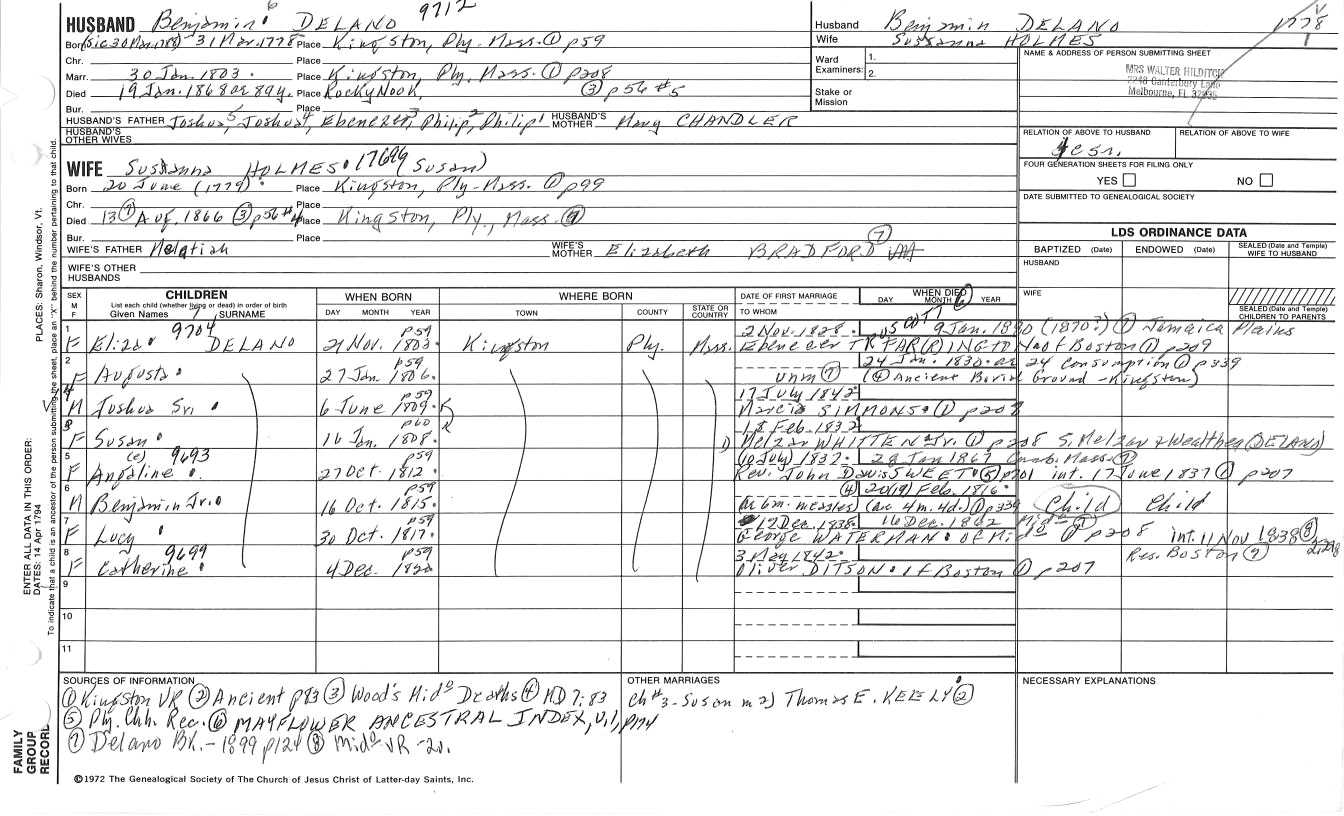 HUSBAND Benjamin 6 DELANO 9712
Born (sic 30 Mar. 1778) 31 Mar. 1778 Place Kingston, Ply-Mass. ① p59
Chr. Place
Marr. 30 Jan. 1803. Place Kingston, Ply. Mass. ① p208
Died 19 Jan. 1868 ae 89y. Place Rocky Nook. ③ p56 #5
Bur. Place
HUSBAND'S FATHER Joshua 5, Joshua 4, Ebenezer 3, Philip 2, Philip 1 HUSBAND'S MOTHER Mary CHANDLER
HUSBAND'S OTHER WIVES
Husband Benjamin DELANO 1778
Wife Susanna HOLMES
Ward Examiners: 1.
2.
Stake or Mission
NAME & ADDRESS OF PERSON SUBMITTING SHEET
MRS WALTER HILDITCH
Canterbury Lane
Melbourne, FL 32935
RELATION OF ABOVE TO HUSBAND RELATION OF ABOVE TO WIFE
FOUR GENERATION SHEETS FOR FILING ONLY
YES NO
DATE SUBMITTED TO GENEALOGICAL SOCIETY
WIFE Susanna HOLMES 17699 (Susan)
Born 20 June (1779) Place Kingston, Ply-Mass. ① p99
Chr. Place
Died 13 ⑦ Aug. 1866 ③ p56 #4 Place Kingston, Ply., Mass. ⑦
Bur. Place
WIFE'S FATHER Melatiah WIFE'S MOTHER Elizabeth BRADFORD ⑦
WIFE'S OTHER HUSBANDS
LDS ORDINANCE DATA
BAPTIZED (Date) ENDOWED (Date) SEALED (Date and Temple) WIFE TO HUSBAND
HUSBAND
WIFE
SEALED (Date and Temple) CHILDREN TO PARENTS
SEX M F
CHILDREN
List each child (whether living or dead) in order of birth
Given Names SURNAME
WHEN BORN
DAY MONTH YEAR
WHERE BORN
TOWN COUNTY STATE OR COUNTRY
DATE OF FIRST MARRIAGE
TO WHOM
WHEN DIED
DAY MONTH YEAR
1 9704 p59 2 Nov. 1828. 9 Jan. 1890 (1870?) ⑦ Jamaica Plains
F Eliza DELANO 21 Nov. 1803. Kingston Ply. Mass. Ebenezer T. FAR(R)INGTON of Boston ① p209
2 p59 24 Jan. 1830. ae 24 consumption ① p339
F Augusta 27 Jan 1806. unm ⑦ (④ Ancient Burial Ground - Kingston)
4 p59 17 July 1842
M Joshua 6 June 1809. Marcia SIMMONS. ① p208
3 p60 18 Feb. 1832
F Susan 16 Jan. 1808. Melzar WHITTEN Jr. ① p208 S. Melzar & Wealthea (DELANO)
5 (e) 9693 p59 (10 July) 1837. 28 Jan 1867 Camb. Mass. ⑦
F Angaline 27 Oct. 1812. Rev. John Davis SWEET ⑤ p701 int. 17 June 1837 ① p207
6 p59 ④ 20(19) Feb. 1816.
M Benjamin Jr. 16 Oct. 1815. ae 6m. measles (ae 4m. 4d.) ① p339 Child Child
7 p59 12 Dec. 1838. 16 Dec. 1862
F Lucy 30 Oct. 1817. George WATERMAN ① p208 int. 11 Nov 1838 ⑧
8 9699 p59 3 May 1842. Res. Boston ⑦
F Catherine 4 Dec. 1820 Oliver DITSON of Boston ① p207
9
10
11
SOURCES OF INFORMATION
① Kingston VR ② Ancient p83 ③ Wood's Mido Deaths ④ MD 7:83
⑤ Ply. Chh. Rec. ⑥ MAYFLOWER ANCESTRAL INDEX, v.1, p174
⑦ Delano BK. - 1899 p124 ⑧ Mido VR
OTHER MARRIAGES
Ch #3 - Susan m 2) Thomas E. KEELY ②
NECESSARY EXPLANATIONS
©1972 The Genealogical Society of The Church of Jesus Christ of Latter-day Saints, Inc.
FAMILY GROUP RECORD
ENTER ALL DATA IN THIS ORDER:
DATES: 14 Apr 1794
PLACES: Sharon, Windsor, Vt.
To indicate that a child is an ancestor of the person submitting the sheet, place an "X" behind the number pertaining to that child.